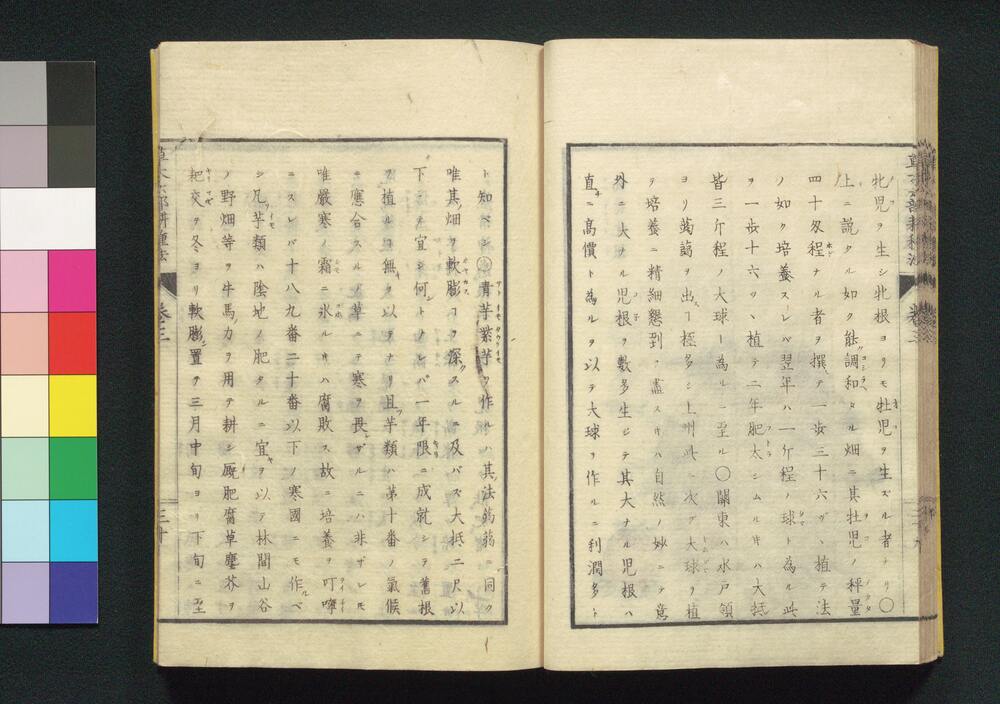 牝児ヲ生シ牝根ヨリモ牡児ヲ生ズル者ナリ〇
上ニ説タル如ク能調和タル畑ニ其牡児ノ秤量
四十匁程ナル者ヲ撰テ一歩三十六ヅヽ植テ法
ノ如ク培養スレバ翌年ハ一斤程ノ球ト為ル此
ヲ一歩十六ヅヽ植テ二年肥太シムルキハ大抵
皆三斤程ノ大球ト為ルニ至ル〇關東ハ水戸領
ヨリ蒟蒻ヲ出スヿ極多シ上州此ニ次グ大球ヲ植
テ培養ニ精細懇到ヲ盡スキハ自然ノ妙ニテ意
外ニ大ナル児根ヲ數多生シテ其大ナル児根ハ
直ニ高價ト為ルヲ以テ大球ヲ作ルニ利潤多ト
草木六部耕種法 巻三
ト知ベシ 青芋紫芋ヲ作ルハ其法蒟蒻ニ同ク
唯其畑ヲ軟膨ヿヲ深クスルニ及バズ大抵二尺以
下ニテ宜シ何トナレバ一年限ニ成就シテ舊根
ヲ植ルヿ無キヲ以テナリ且芋類ハ第十番ノ氣候
ニ應合スルノ草ニテ寒ヲ畏ザルニハ非ザレモ
唯嚴寒ノ霜ニ氷ルキハ腐敗ス故ニ培養ヲ叮嚀
ニスレバ十八九番二十番以下ノ寒國ニモ作ルベ
シ凡ソ芋類ハ陰地ノ肥タルニ宜キヲ以テ林間山谷
ノ野畑等ヲ牛馬力ヲ用テ耕シ厩肥腐草塵芥ヲ
耙交テ冬ヨリ軟膨シ置テ三月中旬ヨリ下旬ニ至
草木六部耕種法 巻三 三十